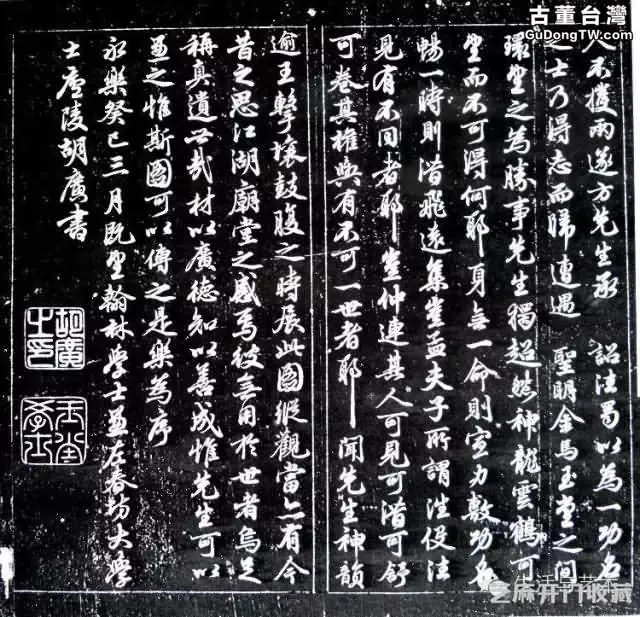 古董台灣
GuDongTW.com
人不獲兩遂方先生承 詔法蜀以為一功名
之士乃得志而歸遭遇 聖明金馬玉堂之間
環望之為勝事先生獨超然神龍雲鶴可
望而不可得何耶身無一命則宣力數功名
暢一時則潛飛遠集豈孟夫子所謂
見有不同者耶豈仲連其人可見可潛可舒
可卷其權輿有不可一世者耶聞先生神韻
逾王擊壤鼓腹之時展此圖縱觀當亦有今
昔之思江湖廟堂之感焉彼無用於世者烏足
稱真遺世哉材以廣德知以善成惟先生可以
並之惟斯圖可以傳之是樂為序
永樂癸巳三月既望翰林學士兼左春坊大學
士廬陵胡廣書
胡廣
之印
玉堂
學士